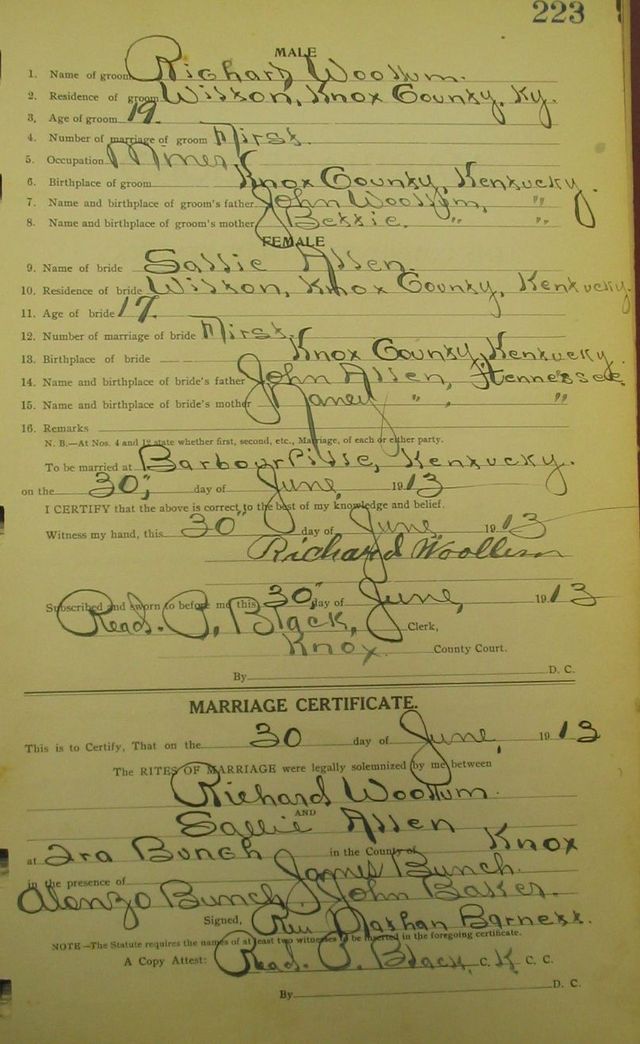 223
MALE
1. Name of groom Richard Woollum.
2. Residence of groom Wilton, Knox County, Ky.
3. Age of groom 19.
4. Number of marriage of groom First.
5. Occupation Miner
6. Birthplace of groom Knox County, Kentucky.
7. Name and birthplace of groom's father John Woollum, "
8. Name and birthplace of groom's mother Bettie. " "
FEMALE
9. Name of bride Sallie Allen.
10. Residence of bride Wilton, Knox County, Kentucky.
11. Age of bride 17.
12. Number of marriage of bride First.
13. Birthplace of bride Knox County, Kentucky.
14. Name and birthplace of bride's father John Allen, Tennessee
15. Name and birthplace of bride's mother Nancy " , "
16. Remarks
N. B.—At Nos. 4 and 12 state whether first, second, etc., Marriage, of each or either party.
To be married at Barbourville, Kentucky.
on the 30," day of June, 1913
I CERTIFY that the above is correct to the best of my knowledge and belief.
Witness my hand, this 30" day of June 1913
Richard Woollum
Subscribed and sworn to before me this 30," day of June, 1913
Read. P. Black, Clerk,
Knox County Court.
By D. C.
MARRIAGE CERTIFICATE.
This is to Certify, That on the 30 day of June, 1913
The RITES OF MARRIAGE were legally solemnized by me between
Richard Woollum.
AND
Sallie Allen
at Ira Bunch in the County of Knox
in the presence of James Bunch.
Alonzo Bunch, John
Signed, Rev Nathan
NOTE—The Statute requires the names of at least two witnesses to be inserted in the foregoing certificate.
A Copy Attest: Read. P. Black, C. K C. C.
By D. C.